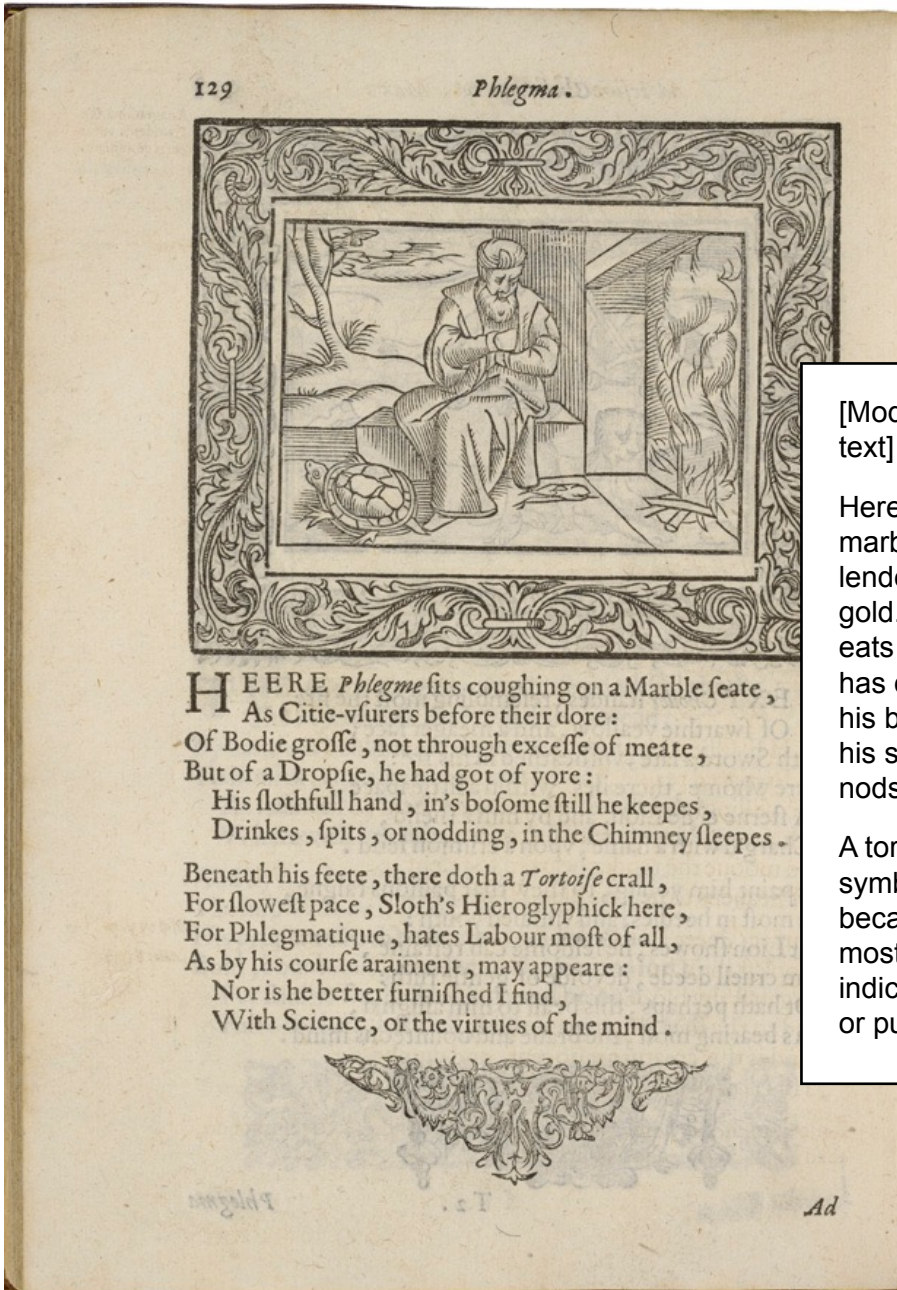 129 Phlegma.
HEERE Phlegme ſits coughing on a Marble ſeate,
As Citie-vſurers before their dore:
Of Bodie groſſe, not through exceſſe of meate,
But of a Dropſie, he had got of yore:
His ſlothfull hand, in's boſome ſtill he keepes,
Drinkes, ſpits, or nodding, in the Chimney ſleepes.
Beneath his feete, there doth a Tortoiſe crall,
For ſloweſt pace, Sloth's Hieroglyphick here,
For Phlegmatique, hates Labour moſt of all,
As by his courſe araiment, may appeare:
Nor is he better furniſhed I find,
With Science, or the virtues of the mind.
Ad
[Mod
text]
Here
marb
lende
gold.
eats
has
his b
his s
nods
A tor
symb
beca
most
indic
or pu